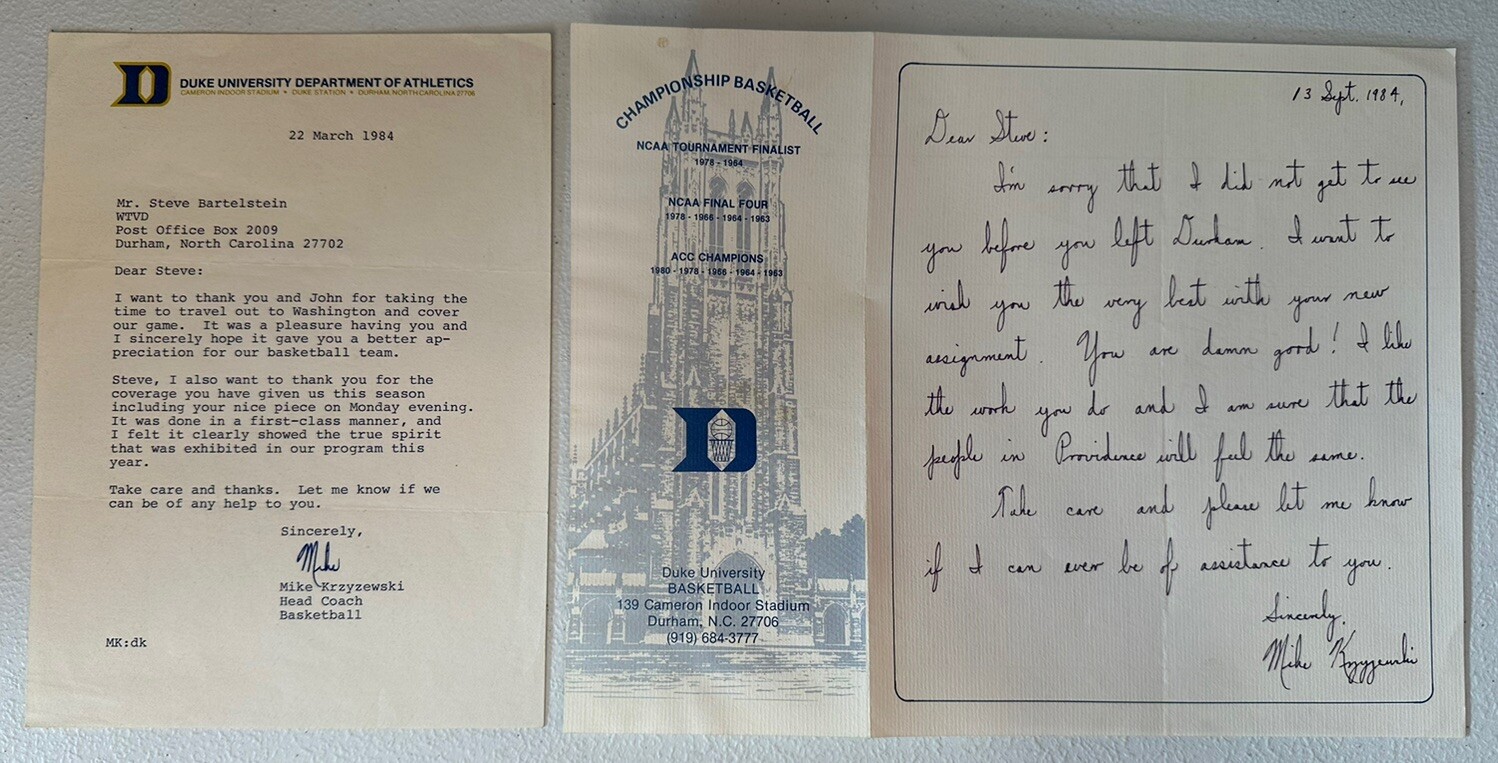 D
DUKE UNIVERSITY DEPARTMENT OF ATHLETICS
CAMERON INDOOR STADIUM • DUKE STATION • DURHAM, NORTH CAROLINA 27706
22 March 1984
Mr. Steve Bartelstein
WTVD
Post Office Box 2009
Durham, North Carolina 27702
Dear Steve:
I want to thank you and John for taking the
time to travel out to Washington and cover
our game. It was a pleasure having you and
I sincerely hope it gave you a better ap-
preciation for our basketball team.
Steve, I also want to thank you for the
coverage you have given us this season
including your nice piece on Monday evening.
It was done in a first-class manner, and
I felt it clearly showed the true spirit
that was exhibited in our program this
year.
Take care and thanks. Let me know if we
can be of any help to you.
Sincerely,
Mike
Mike Krzyzewski
Head Coach
Basketball
MK:dk
CHAMPIONSHIP BASKETBALL
NCAA TOURNAMENT FINALIST
1978 - 1964
NCAA FINAL FOUR
1978 - 1966 - 1964 - 1963
ACC CHAMPIONS
1980 - 1978 - 1966 - 1964 - 1963
D
Duke University
BASKETBALL
139 Cameron Indoor Stadium
Durham, N.C. 27706
(919) 684-3777
13 Sept. 1984,
Dear Steve:
I'm sorry that I did not get to see
you before you left Durham. I want to
wish you the very best with your new
assignment. You are damn good! I like
the work you do and I am sure that the
people in Providence will feel the same.
Take care and please let me know
if I can ever be of assistance to you.
Sincerely,
Mike Krzyzewski